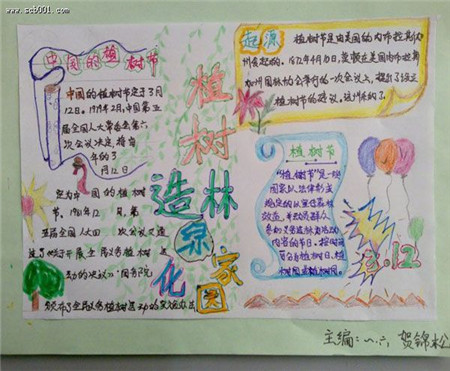 www.scb001.com
中国的植树节
中国的植树节定于3月
12日。1979年2月,中国第五
届全国人大常委会第六
次会议决定,将每
年的3
月12日
定为中国的植树
节。1981年12月,第
五届全国人大四次会议通
过了《关于开展全民义务植树运
动的决议》。国务院
颁布了全民义务植树运动的
植树
造林
绿化
家园
起源
植树节是由美国的内布拉斯加
州发起的。1872年4月10日,
加州园林协会举行的一次会议上,提出了设立
植树节的建议。
植树节
"植树节"是一些
国家以法律形式
规定的以宣传森林
效益,并动员群众
参加义务造林为活动
内容的节日。按时间
可分为植树日、植
树周或植树月。
3.12
主编:六 贺锦松